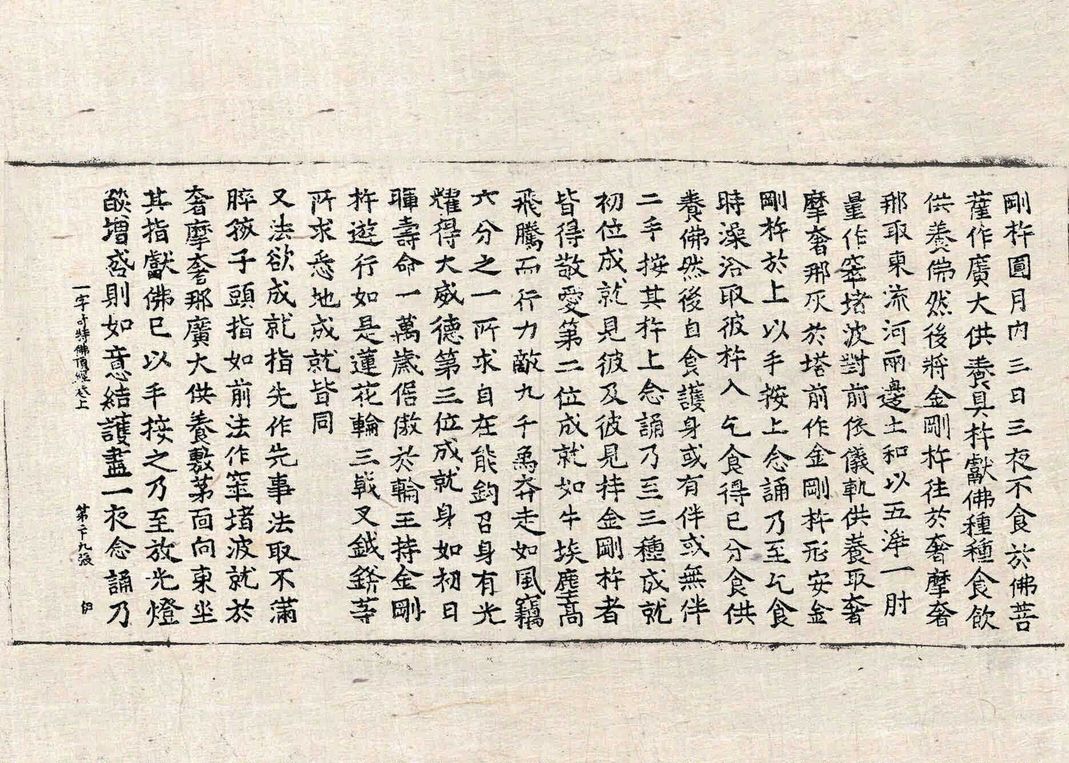 剛杵圓月內三日三夜不食於佛菩
薩作廣大供養具杵獻佛種種食飲
供養佛然後將金剛杵往於奢摩奢
那取東流河兩邊土和以五淨一肘
量作窣堵波對前依儀軌供養取奢
摩奢那灰於塔前作金剛杵形安金
剛杵於上以手按上念誦乃至乞食
時澡浴取彼杵入乞食得已分食供
養佛然後自食護身或有伴或無伴
二手按其杵上念誦乃至三種成就
初位成就見彼及彼見持金剛杵者
皆得敬愛第二位成就如牛埃塵高
飛騰而行力敵九千象奔走如風竊
六分之一所求自在能鈎召身有光
耀得大威德第三位成就身如初日
暉壽命一萬歲倨傲於輪王持金剛
杵遊行如是蓮花輪三戟叉鉞鎊等
所求悉地成就皆同
又法欲成就指先作先事法取不滿
䏶孩子頭指如前法作窣堵波就於
奢摩奢那廣大供養敷茅面向東坐
其指獻佛已以手按之乃至放光燈
燄增盛則如意結護盡一夜念誦乃
一字奇特佛頂經卷上 第二十九張